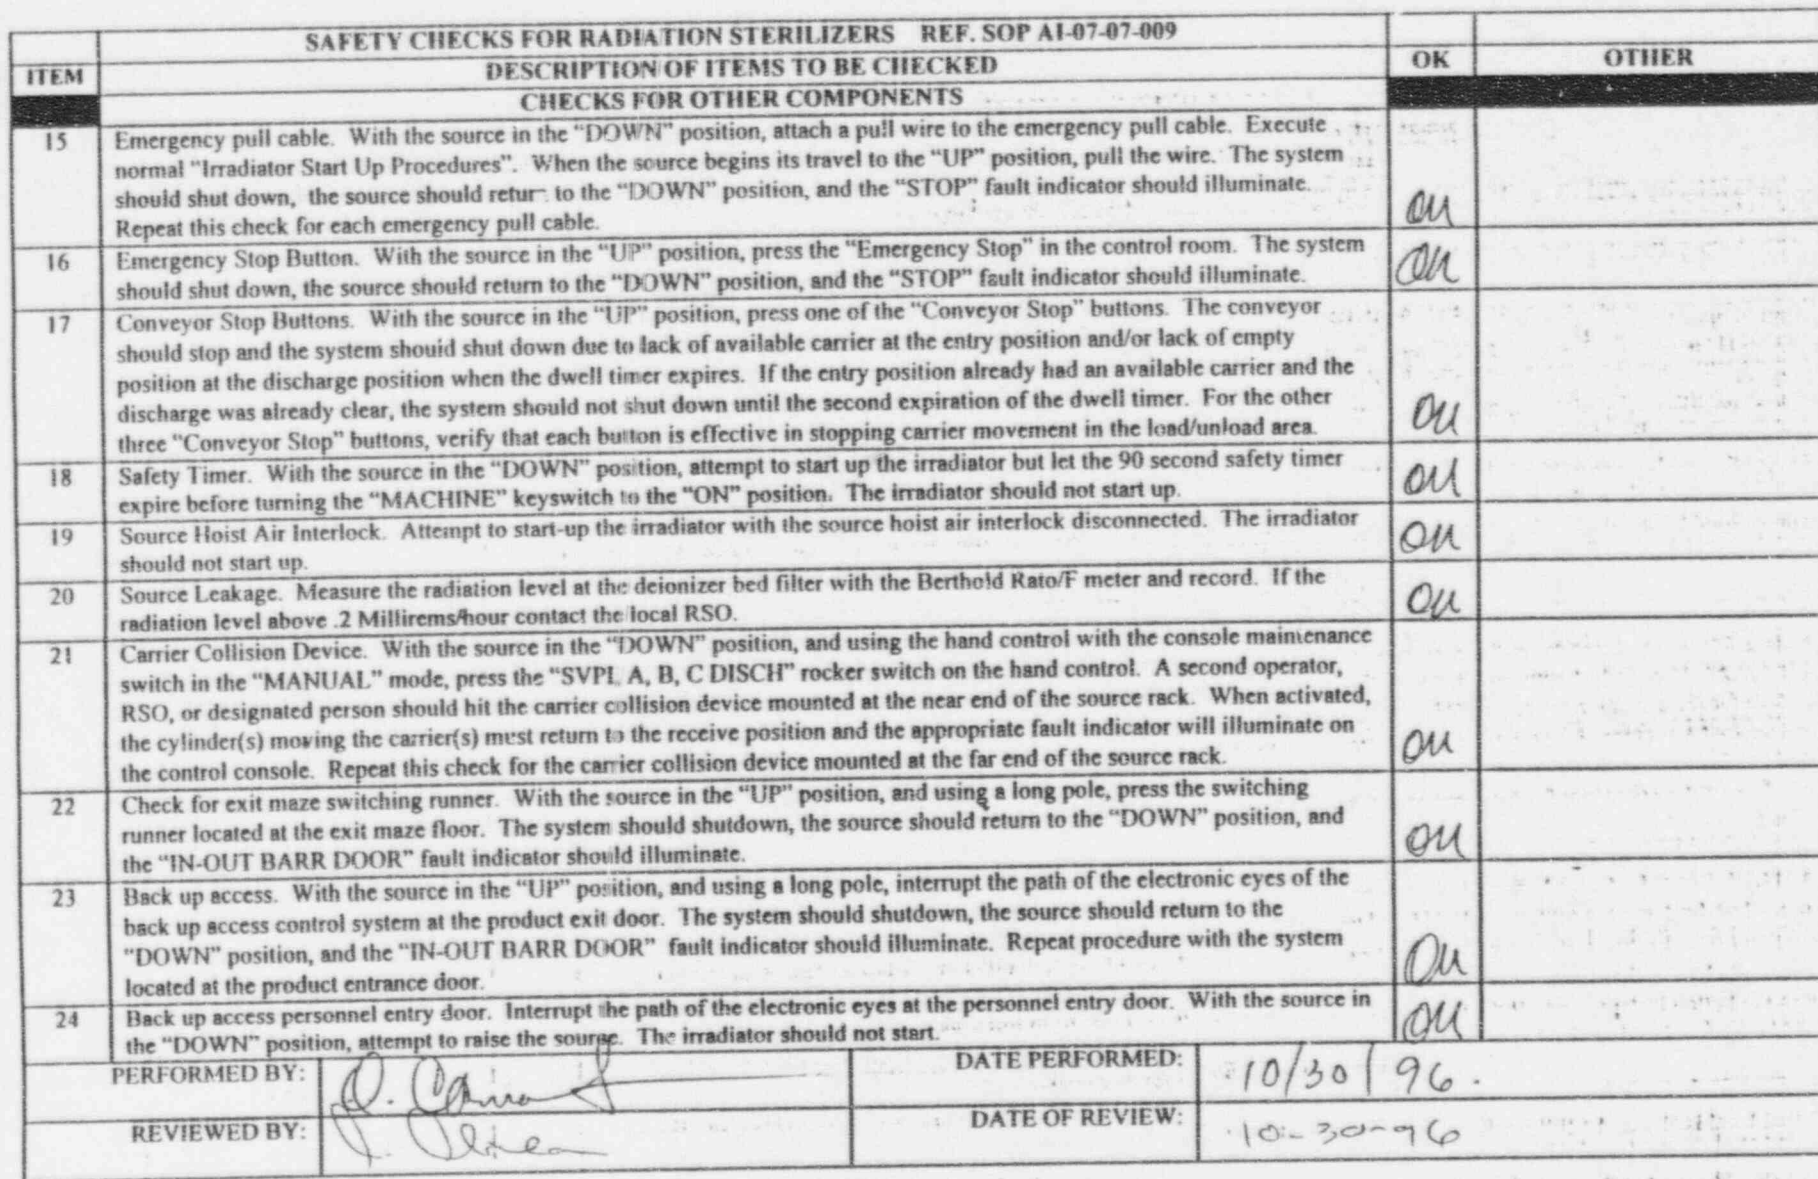 SAFETY CHECKS FOR RADIATION STERILIZERS REF. SOP AI-07-07-009
ITEM DESCRIPTION OF ITEMS TO BE CHECKED OK OTHER
CHECKS FOR OTHER COMPONENTS
15 Emergency pull cable. With the source in the "DOWN" position, attach a pull wire to the emergency pull cable. Execute
normal "Irradiator Start Up Procedures". When the source begins its travel to the "UP" position, pull the wire. The system
should shut down, the source should return to the "DOWN" position, and the "STOP" fault indicator should illuminate.
Repeat this check for each emergency pull cable.
16 Emergency Stop Button. With the source in the "UP" position, press the "Emergency Stop" in the control room. The system
should shut down, the source should return to the "DOWN" position, and the "STOP" fault indicator should illuminate.
17 Conveyor Stop Buttons. With the source in the "UP" position, press one of the "Conveyor Stop" buttons. The conveyor
should stop and the system should shut down due to lack of available carrier at the entry position and/or lack of empty
position at the discharge position when the dwell timer expires. If the entry position already had an available carrier and the
discharge was already clear, the system should not shut down until the second expiration of the dwell timer. For the other
three "Conveyor Stop" buttons, verify that each button is effective in stopping carrier movement in the load/unload area.
18 Safety Timer. With the source in the "DOWN" position, attempt to start up the irradiator but let the 90 second safety timer
expire before turning the "MACHINE" keyswitch to the "ON" position. The irradiator should not start up.
19 Source Hoist Air Interlock. Attempt to start-up the irradiator with the source hoist air interlock disconnected. The irradiator
should not start up.
20 Source Leakage. Measure the radiation level at the deionizer bed filter with the Berthold Rato/F meter and record. If the
radiation level above .2 Millirems/hour contact the local RSO.
21 Carrier Collision Device. With the source in the "DOWN" position, and using the hand control with the console maintenance
switch in the "MANUAL" mode, press the "SVPL A, B, C DISCH" rocker switch on the hand control. A second operator,
RSO, or designated person should hit the carrier collision device mounted at the near end of the source rack. When activated,
the cylinder(s) moving the carrier(s) must return to the receive position and the appropriate fault indicator will illuminate on
the control console. Repeat this check for the carrier collision device mounted at the far end of the source rack.
22 Check for exit maze switching runner. With the source in the "UP" position, and using a long pole, press the switching
runner located at the exit maze floor. The system should shutdown, the source should return to the "DOWN" position, and
the "IN-OUT BARR DOOR" fault indicator should illuminate.
23 Back up access. With the source in the "UP" position, and using a long pole, interrupt the path of the electronic eyes of the
back up access control system at the product exit door. The system should shutdown, the source should return to the
"DOWN" position, and the "IN-OUT BARR DOOR" fault indicator should illuminate. Repeat procedure with the system
located at the product entrance door.
24 Back up access personnel entry door. Interrupt the path of the electronic eyes at the personnel entry door. With the source in
the "DOWN" position, attempt to raise the source. The irradiator should not start.
PERFORMED BY: DATE PERFORMED: 10/30/96.
REVIEWED BY: DATE OF REVIEW: 10-30-96